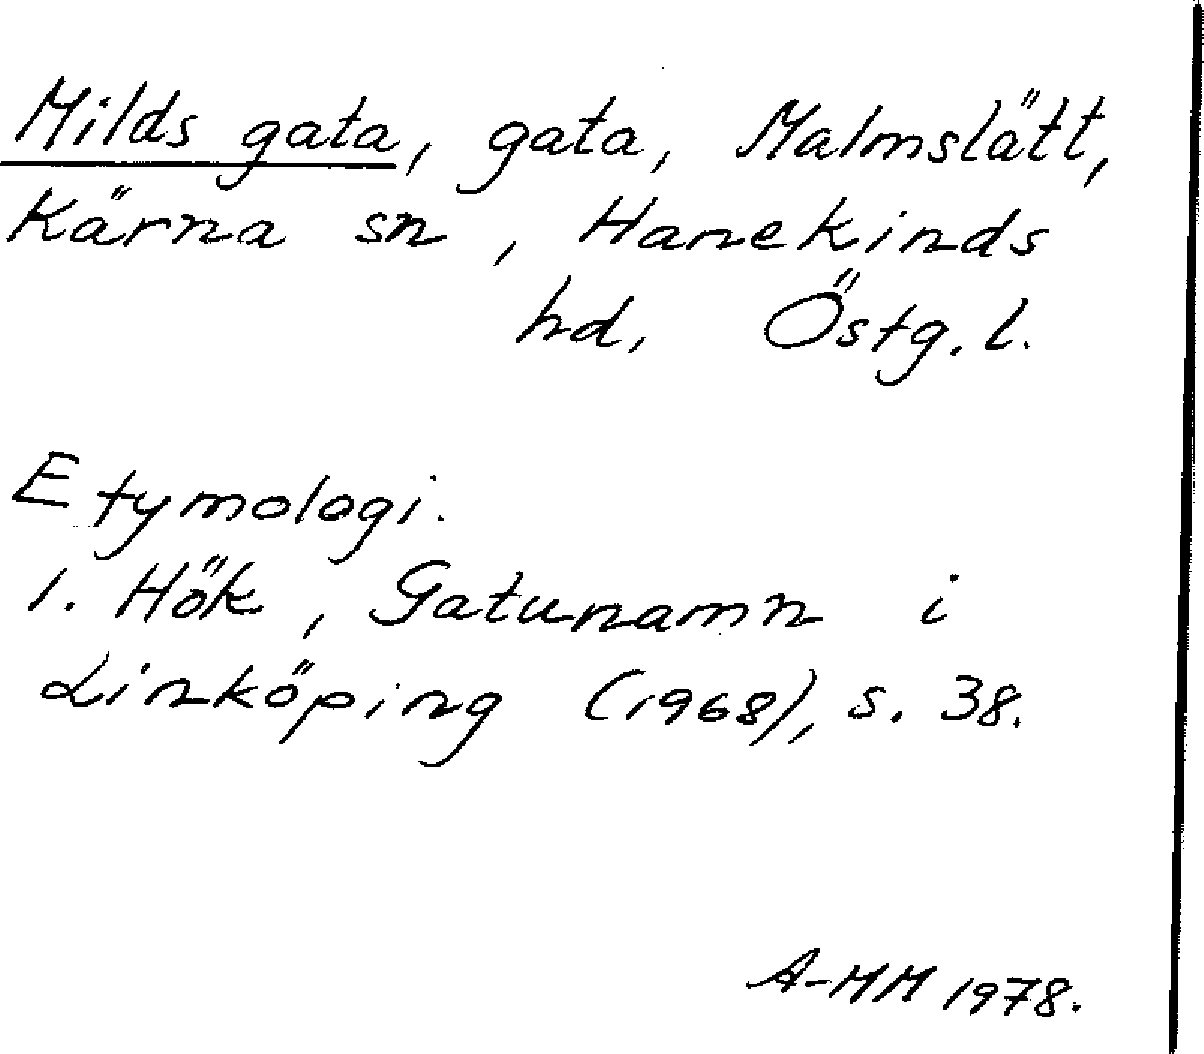 Milds gata, gata, Malmslätt,
Kärna sn, Hanekinds
hd, Östg. l.
Etymologi.
1. Hök, Gatunamn i
Linköping (1968), s. 38.
A-MM 1978.